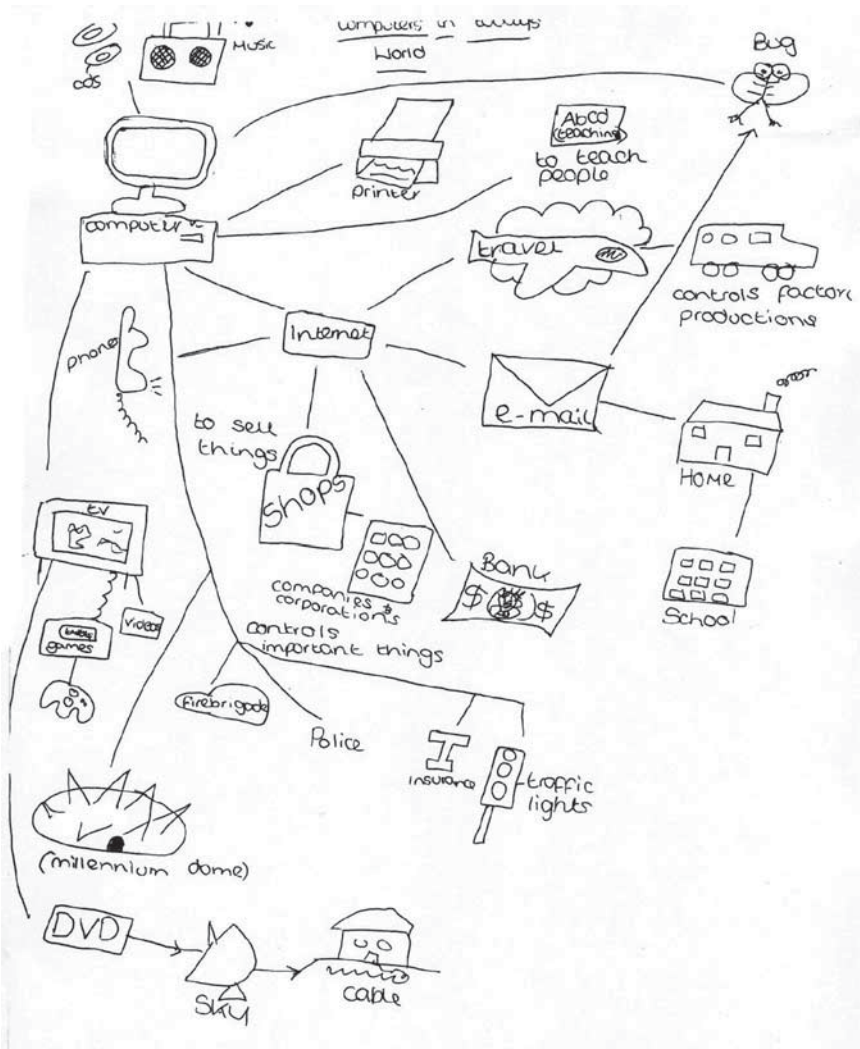 MUSIC
cds
computers in todays
World
Bug
Abcd
(teaching)
to teach
people
printer
computer
travel
controls factory
productions
phone
Internet
e-mail
to sell
things
Shops
HOME
tv
companies &
corporations
Bank
$ $
School
videos
games
controls
important things
firebrigade
Police
insurance
traffic
lights
(millennium dome)
DVD
SKY
cable